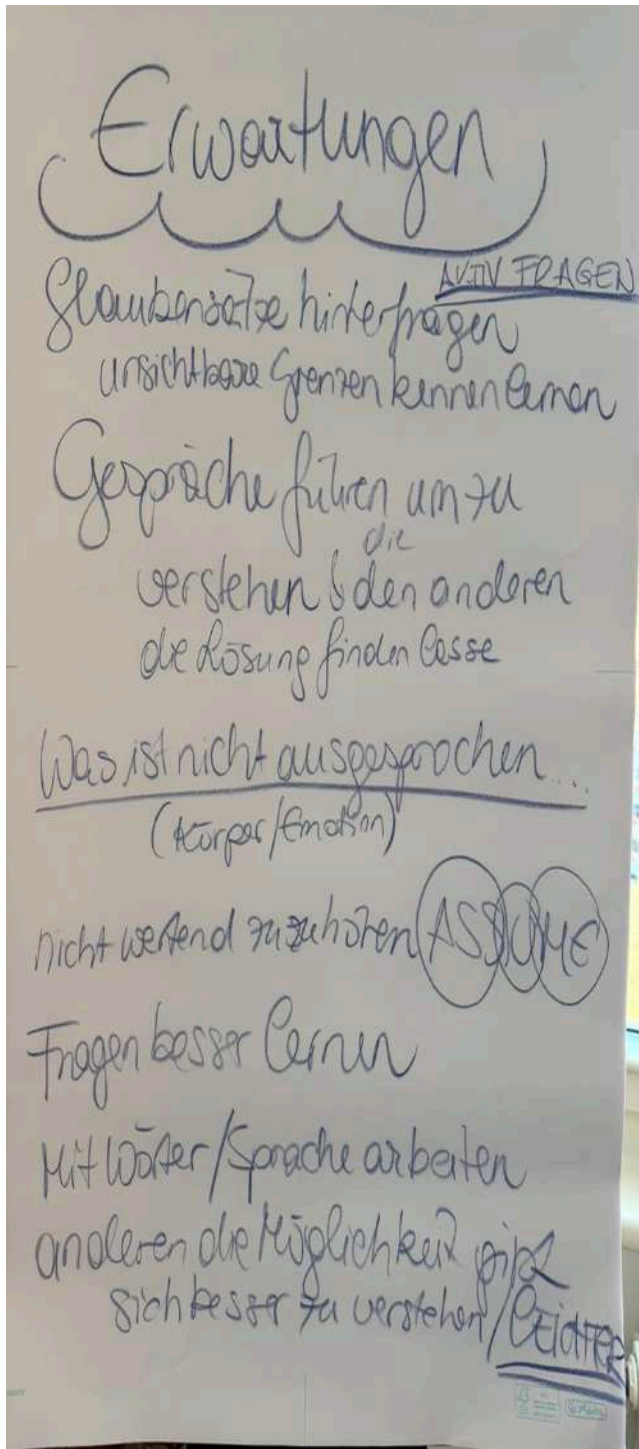 Erwartungen
AKTIV FRAGEN
Glaubensätze hinterfragen
unsichtbare Grenzen kennen lernen
Gespräche führen um zu
die
verstehen & den anderen
die Lösung finden lasse
Was ist nicht ausgesprochen...
(Körper/Emotion)
nicht wertend zuzuhören ASSUME
Fragen besser lernen
Mit Wörter/Sprache arbeiten
anderen die Möglichkeit gibt
sich besser zu verstehen/LEICHTER